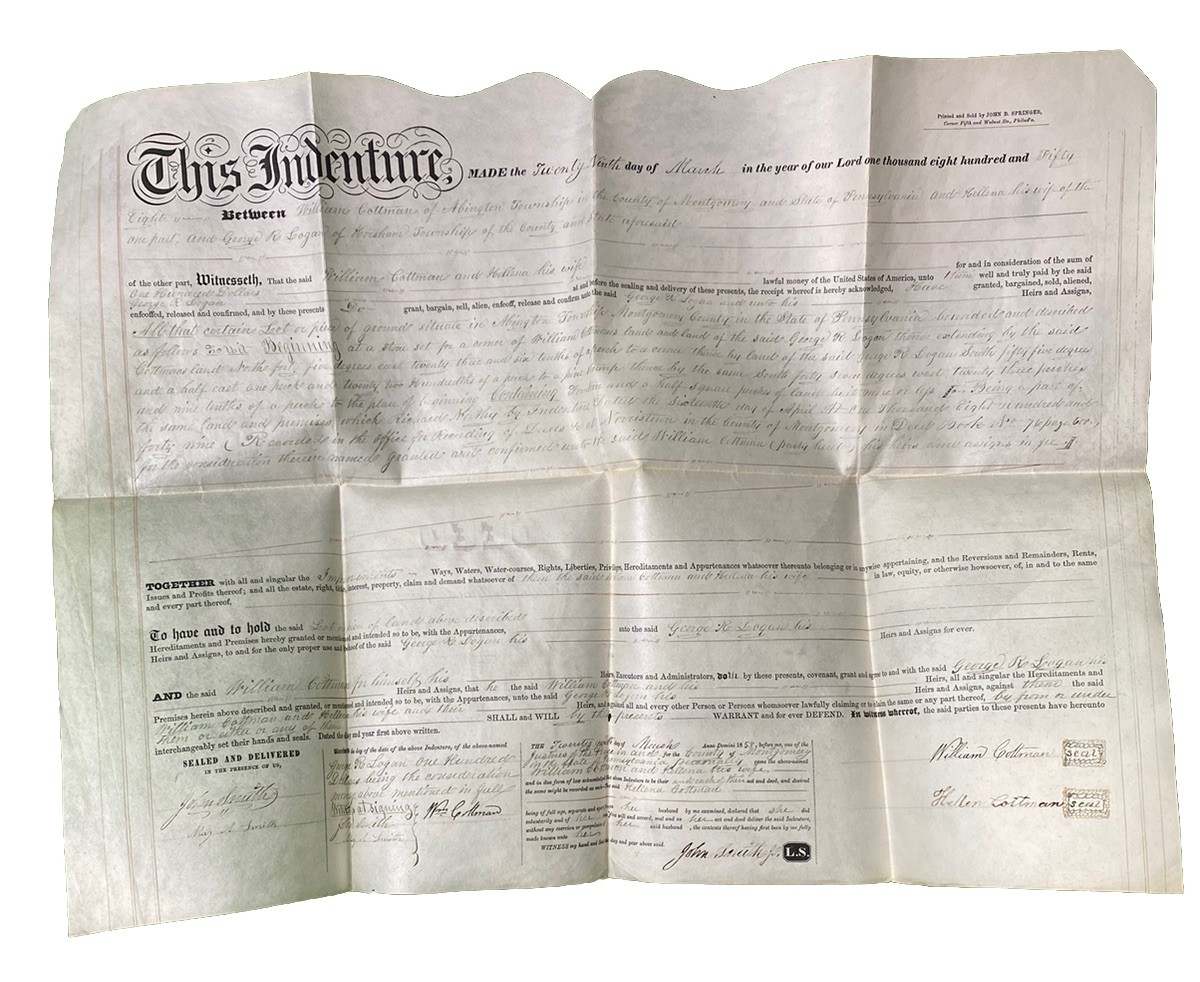 Printed and Sold by JOHN D. SPRINGER,
Corner Fifth and Walnut Sts., Philad'a.
This Indenture, MADE the Twenty Ninth day of March in the year of our Lord one thousand eight hundred and Fifty
Eight Between William Cottman of Abington Township in the County of Montgomery and State of Pennsylvania and Hellena his wife of the
one part, and George R Logan of Horsham Township of the County and State aforesaid
of the other part, Witnesseth, That the said William Cottman and Hellena his wife for and in consideration of the sum of
One Hundred Dollars lawful money of the United States of America, unto them well and truly paid by the said
George R Logan at and before the sealing and delivery of these presents, the receipt whereof is hereby acknowledged, Have granted, bargained, sold, aliened,
enfeoffed, released and confirmed, and by these presents Do grant, bargain, sell, alien, enfeoff, release and confirm unto the said George R Logan and unto his Heirs and Assigns,
All that certain Lot or piece of ground situate in Abington Township Montgomery County in the State of Pennsylvania bounded and discribed
as follows Beginning at a stone set for a corner of William Cottmans land and land of the said George R Logan thence extending by the said
Cottmans land North forty five degrees east twenty three and six tenths of a perch to a corner thence by land of the said George R Logan South fifty five degrees
and a half east one perch and twenty two Hundredths of a perch to a pine stump thence by the same South forty seven degrees west twenty three perches
and nine tenths of a perch to the place of beginning Containing and a half square perches of land be it more or less Being a part of
the same land and premises which Richard by Indenture dated the Sixteenth day of April AD one Thousand Eight Hundred and
forty nine (Recorded in the office for Recording of Deeds &c at Norristown in the County of Montgomery in Deed Book No 76 page
for the consideration therein named granted and confirmed unto the said William Cottman (party hereto) his heirs and assigns in fee
TOGETHER with all and singular the Improvements Ways, Waters, Water-courses, Rights, Liberties, Privileges, Hereditaments and Appurtenances whatsoever thereunto belonging or in anywise appertaining, and the Reversions and Remainders, Rents,
Issues and Profits thereof; and all the estate, right, title, interest, property, claim and demand whatsoever of them the said William Cottman and Hellena his wife in law, equity, or otherwise howsoever, of, in and to the same
and every part thereof,
To have and to hold the said Lot or piece of land above discribed
Hereditaments and Premises hereby granted or mentioned and intended so to be, with the Appurtenances, unto the said George R Logan his Heirs and Assigns for ever.
Heirs and Assigns, to and for the only proper use and behoof of the said George R Logan his
AND the said William Cottman for himself, his Heirs, Executors and Administrators, doth by these presents, covenant, grant and agree to and with the said George R Logan his
Heirs and Assigns, that he the said William Cottman and his Heirs, all and singular the Hereditaments and
Premises herein above described and granted, or mentioned and intended so to be, with the Appurtenances, unto the said George R Logan his Heirs and Assigns, against them the said
William Cottman and Hellena his wife and their Heirs, and against all and every other Person or Persons whomsoever lawfully claiming or to claim the same or any part thereof, by from or under
them or either or any of them SHALL and WILL by these presents WARRANT and for ever DEFEND. In witness whereof, the said parties to these presents have hereunto
interchangeably set their hands and seals. Dated the day and year first above written.
SEALED AND DELIVERED
IN THE PRESENCE OF US,
John Smith
May A Smith
day of the date of the above Indenture, of the above-named
George R Logan One Hundred
Dollars being the consideration
money above mentioned in full
Witness at signing
John Smith
Wm Cottman
THE Twenty ninth day of March Anno Domini 1858, before me, one of the
Justices of the Peace in and for the County of Montgomery
in the State of Pennsylvania personally came the above-named
William Cottman and Hellena his wife
and in due form of law acknowledged the above Indenture to be their and each of their act and deed, and desired
the same might be recorded as such. The said Hellena Cottman
being of full age, separate and apart from her husband by me examined, declared that she did
voluntarily and of her own free will and accord, seal and as her act and deed deliver the said Indenture,
without any coercion or compulsion of her said husband, the contents thereof having first been by me fully
made known unto her
WITNESS my hand and seal the day and year above said.
John Smith Jr. L.S.
William Cottman seal
Hellen Cottman seal